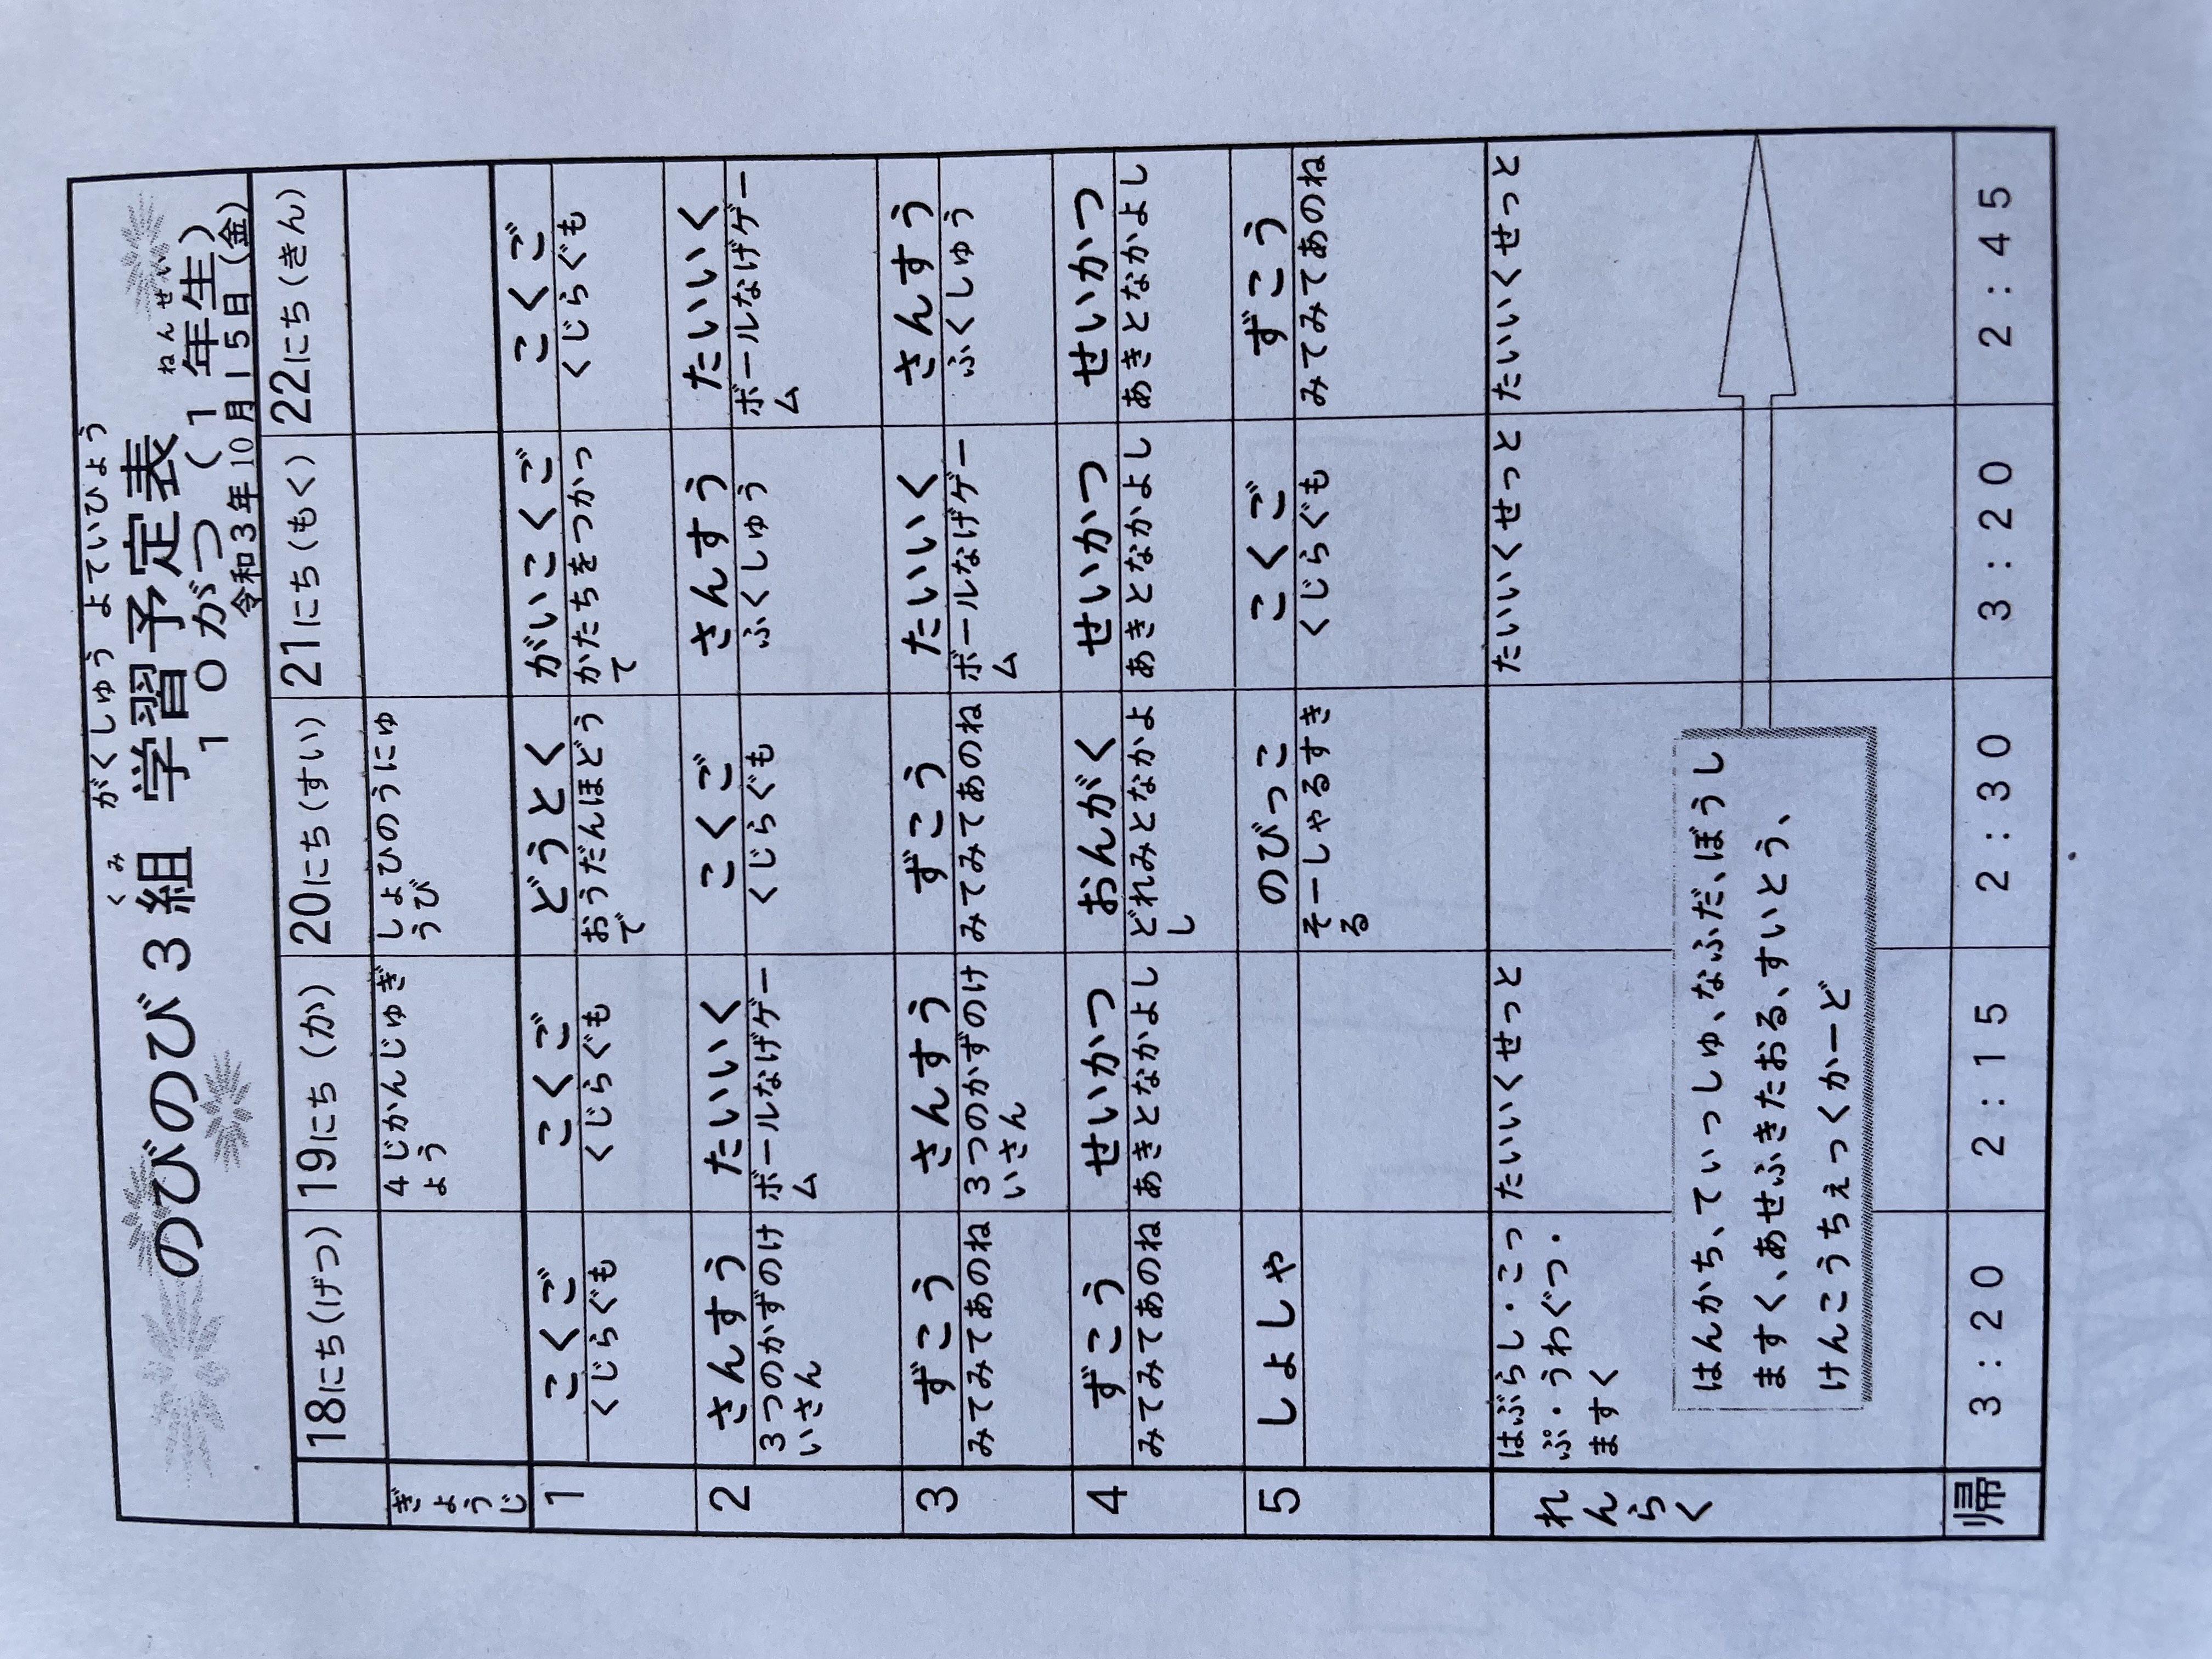 がくしゅう よていひょう
くみ
のびのび３組 学習予定表
ねんせい
１０がつ（１年生）
令和３年10月１５日（金）
18にち（げつ） 19にち（か） 20にち（すい） 21にち（もく） 22にち（きん）
ぎょうじ
４じかんじゅぎ
ょう
しょひのうにゅ
うび
1
こくご こくご どうとく がいこくご こくご
くじらぐも くじらぐも おうだんほどう かたちをつかっ くじらぐも
で て
2
さんすう たいいく こくご さんすう たいいく
３つのかずのけ ボールなげゲー くじらぐも ふくしゅう ボールなげゲー
いさん ム ム
3
ずこう さんすう ずこう たいいく さんすう
みてみてあのね ３つのかずのけ みてみてあのね ボールなげゲー ふくしゅう
いさん ム
4
ずこう せいかつ おんがく せいかつ せいかつ
みてみてあのね あきとなかよし どれみとなかよ あきとなかよし あきとなかよし
し
5
しょしゃ のびっこ こくご ずこう
そーしゃるすき くじらぐも みてみてあのね
る
れんらく
はぶらし・こっ たいいくせっと たいいくせっと たいいくせっと
ぷ・うわぐつ・
ますく
はんかち、ていっしゅ、なふだ、ぼうし
ますく、あせふきたおる、すいとう、
けんこうちぇっくかーど
帰 3：20 2：15 2：30 3：20 2：45